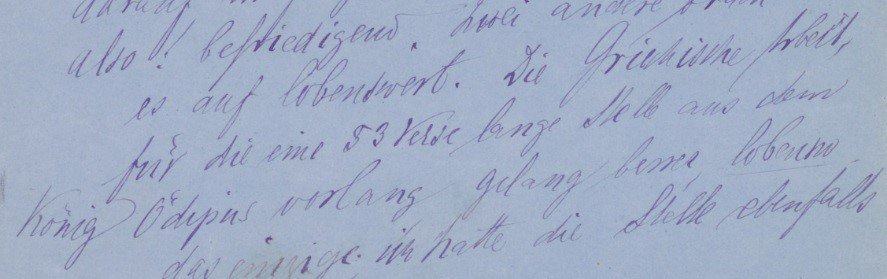 darauf
also! befriedigend. Zwei andere
es auf lobenswert. Die Griechische Arbeit,
für die eine 33 Verse lange Stelle aus dem
König Ödipus vorlag gelang besser lobensw
das einzige; ich hatte die Stelle ebenfalls